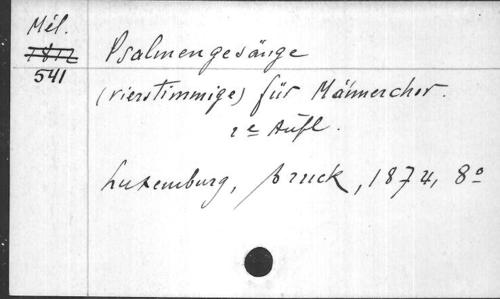 Mél.
541
Psalmengesänge
(vierstimmige) für Männerchor.
2e Aufl.
Luxemburg, Bruck, 1874, 8°